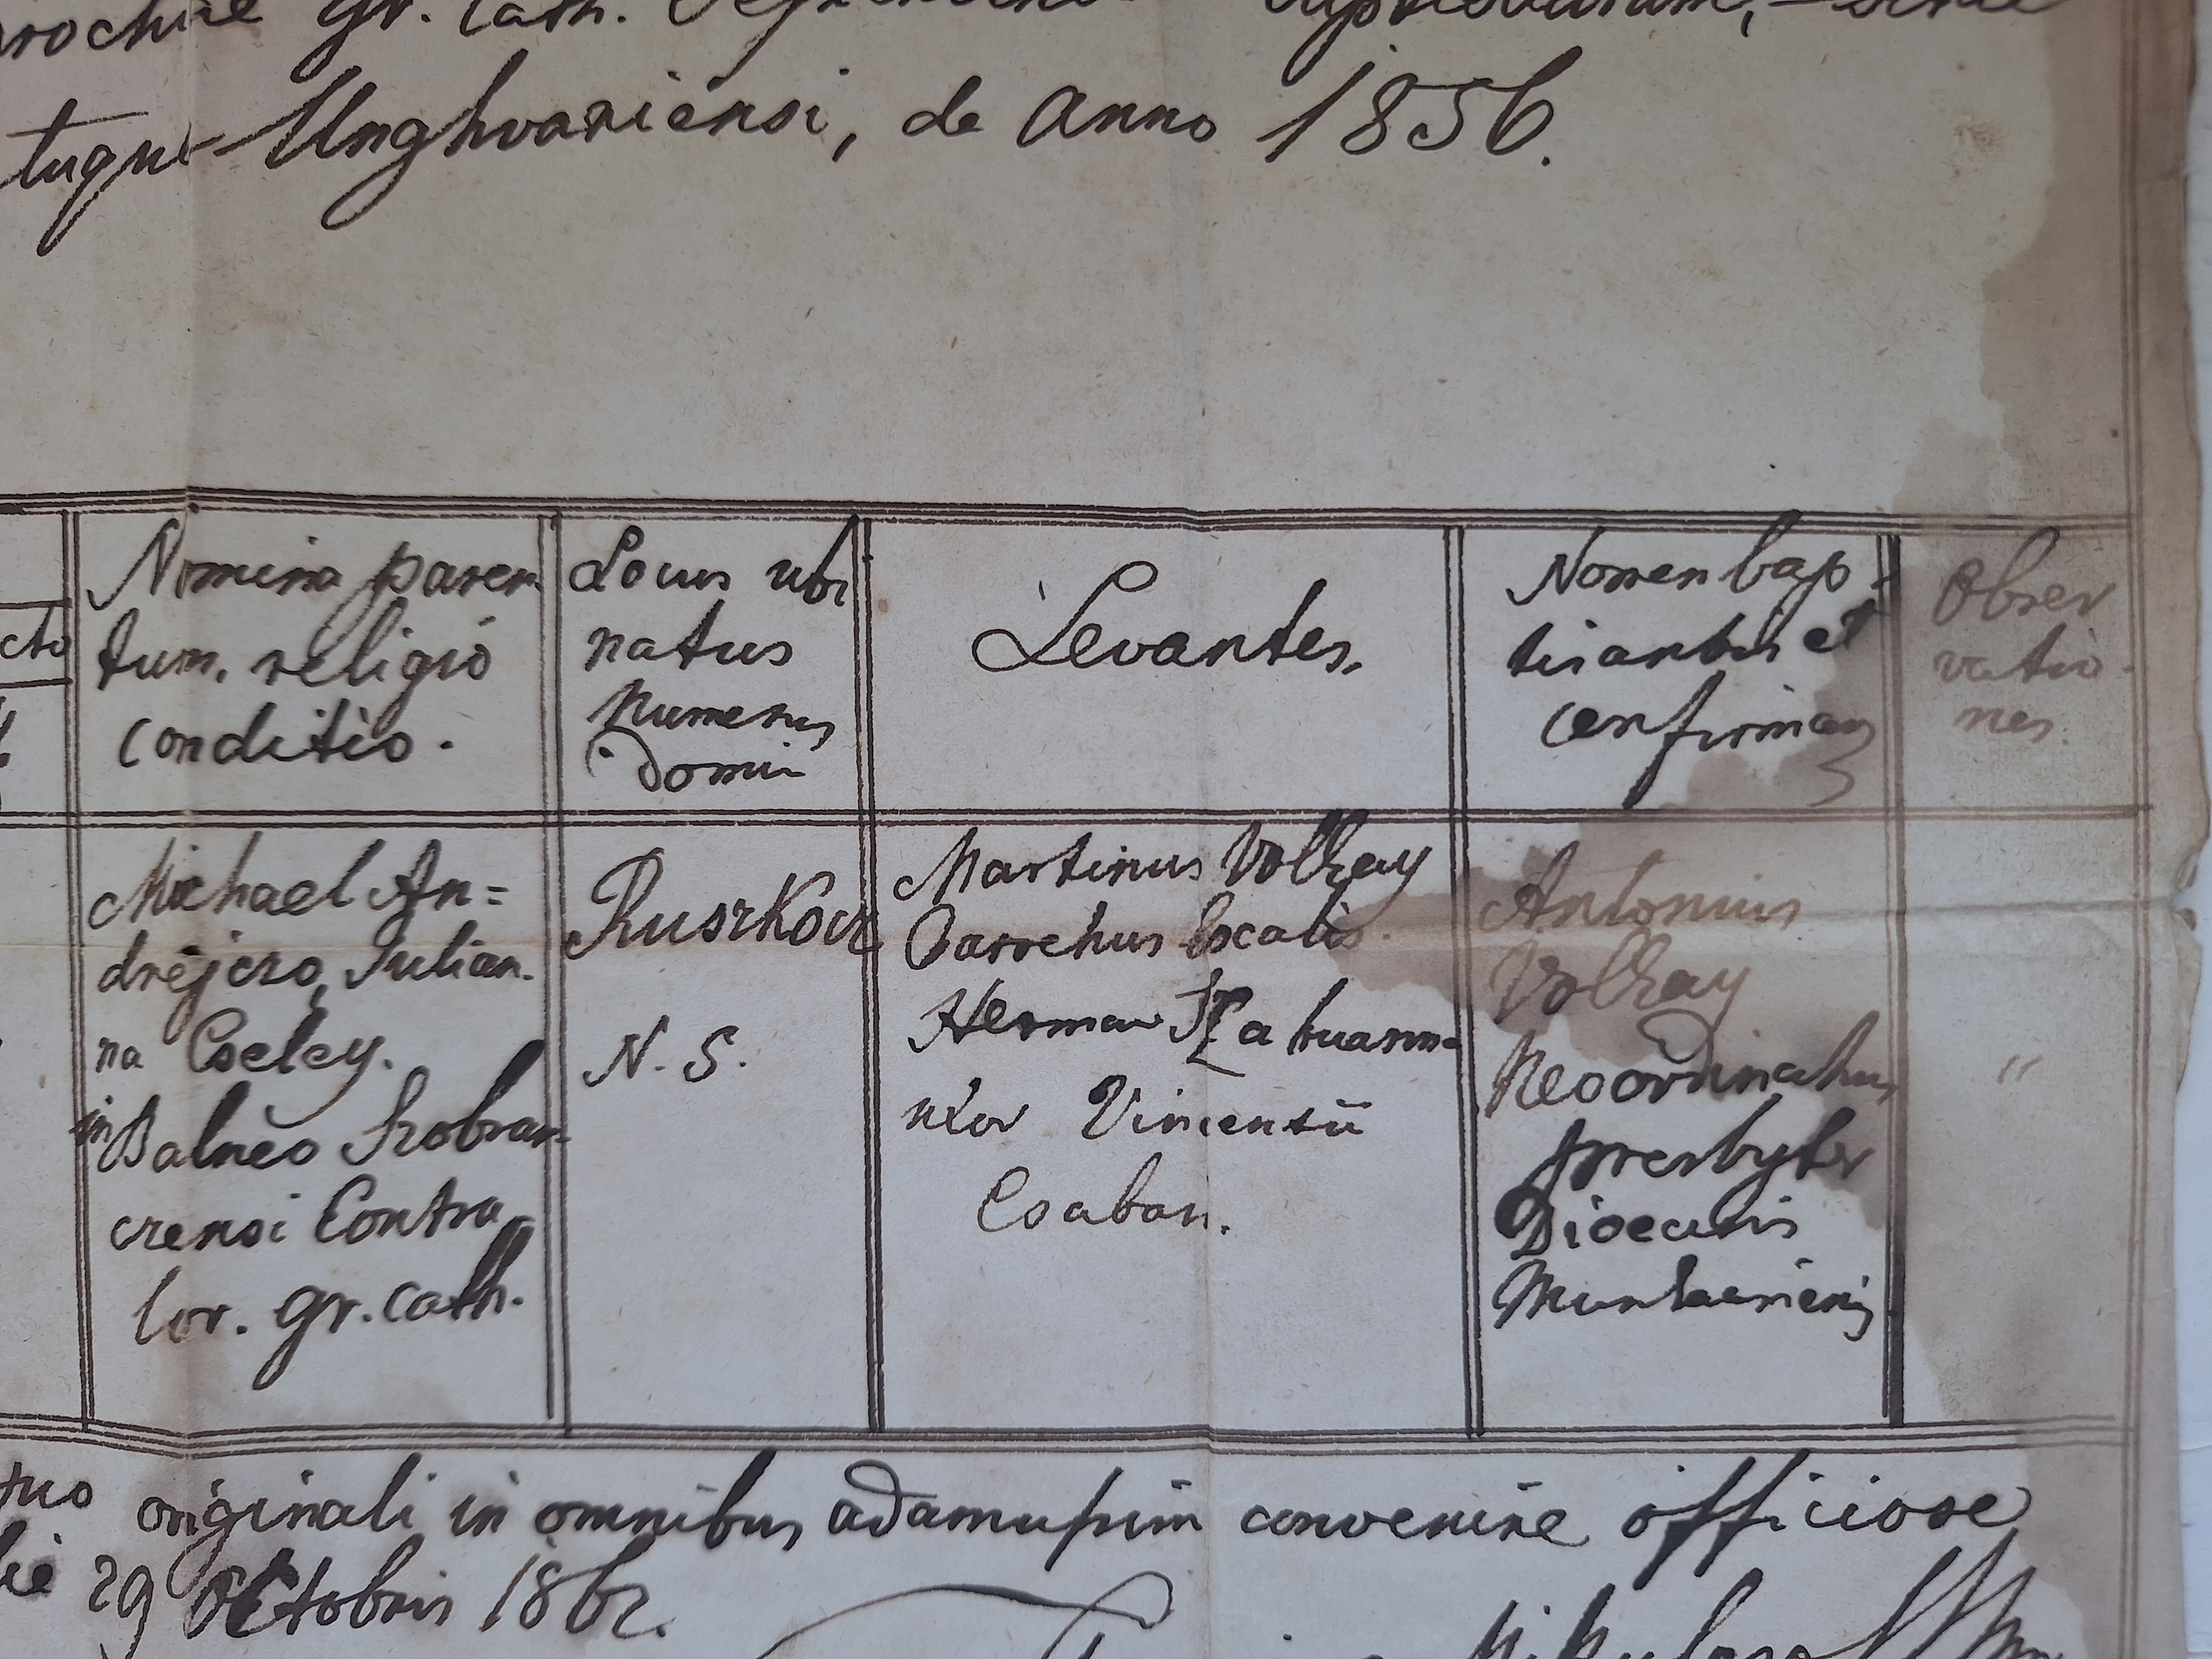 Gr. Cath.
Unghvariensi, de Anno 1856.
cto
Nomina paren
tum, religio
conditio.
Locus ubi
natus
Numerus
Domui
Levantes,
Nomen bap-
tisantis et
confirman
Obser
vatio-
nes
Michael An=
drejczo, Julian-
na Cseley.
in Balneo Szobran-
czensi Contra-
lor. gr. Cath.
Ruszkócz
N. S.
Martinus Volkay
Parochus localis.
Herman
uxor Vincentii
Csaban.
Antonius
Volkay
Neoordinatus
presbyter
Dioecesis
Munkacsiensis
"
originali in omnibus adamussim convenire officiose
29 Octobris 1862.